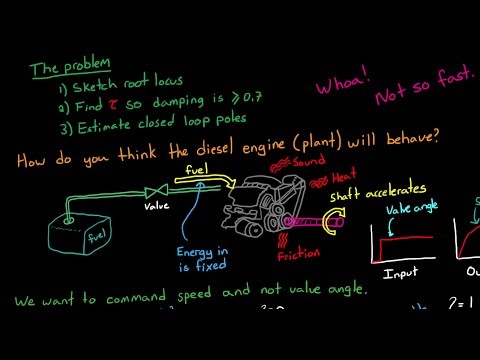 The problem
1) Sketch root locus
2) Find τ so damping is ≥ 0.7
3) Estimate closed loop poles
Whoa!
Not so fast.
How do you think the diesel engine (plant) will behave?
fuel
Sound
Heat
shaft accelerates
Valve
fuel
Energy in
is fixed
Friction
Valve angle
Input
We want to command speed and not valve angle.